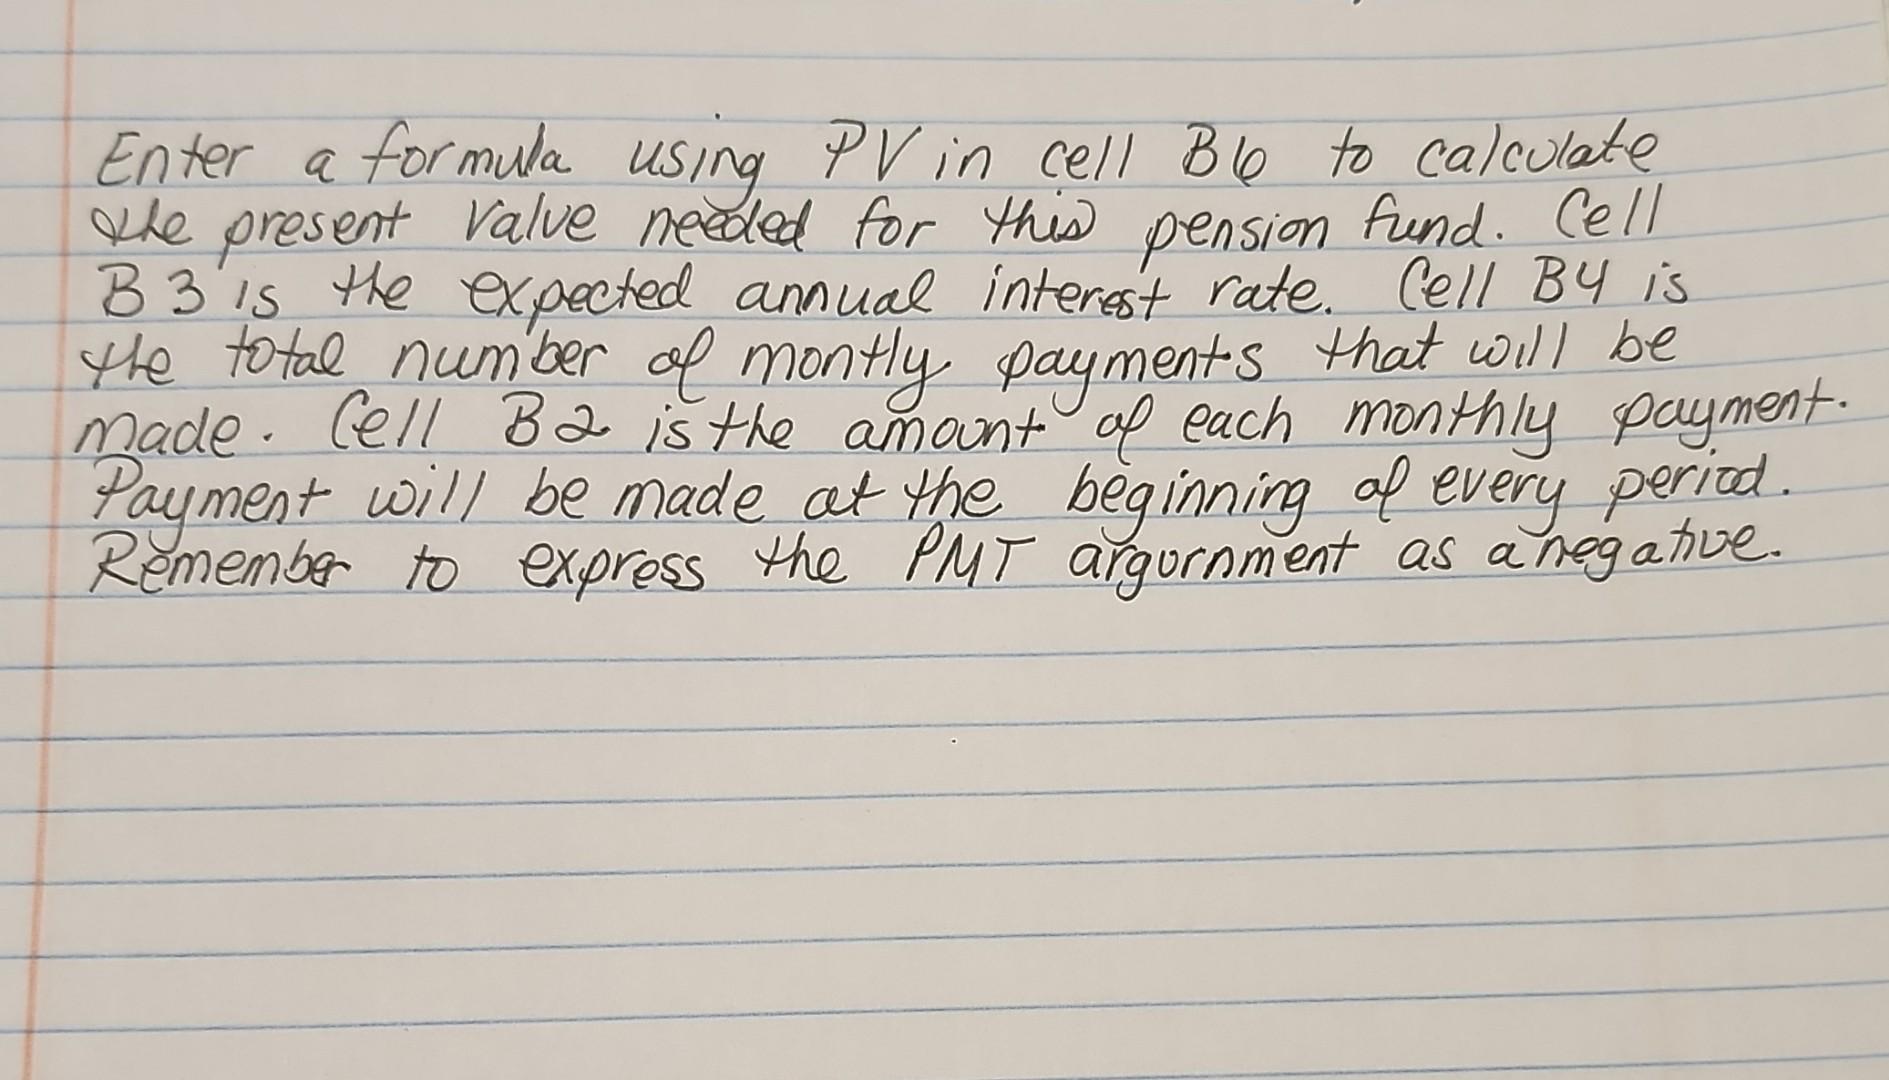 Enter a formula using PV in cell B6 to calculate
the present value needed for this pension fund. Cell
B3 is the expected annual interest rate. Cell B4 is
the total number of montly payments that will be
made. Cell B2 is the amount of each monthly payment.
Payment will be made at the beginning of every period.
Remember to express the PMT argornment as a negative.